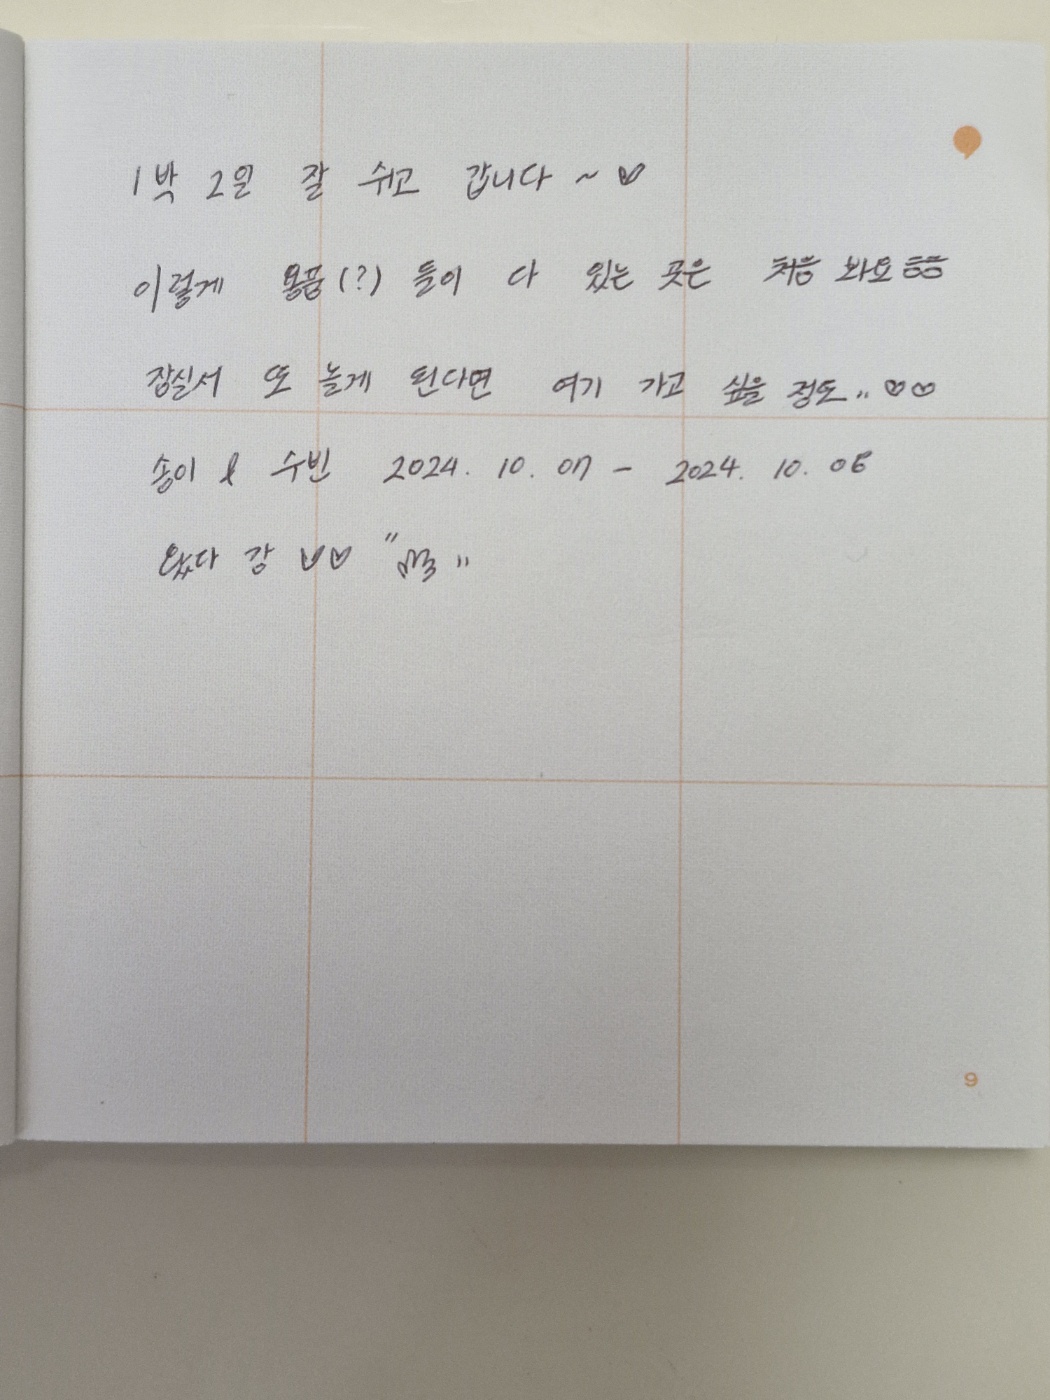 1박 2일 잘 쉬고 갑니다 ~ ♡
이렇게 용품(?) 들이 다 있는 곳은 처음 봐요 ㅎㅎ
잠실서 또 놀게 된다면 여기 가고 싶을 정도.. ♡♡
송이 & 수빈 2024. 10. 07 - 2024. 10. 08
왔다 감 ♡♡ " "
9